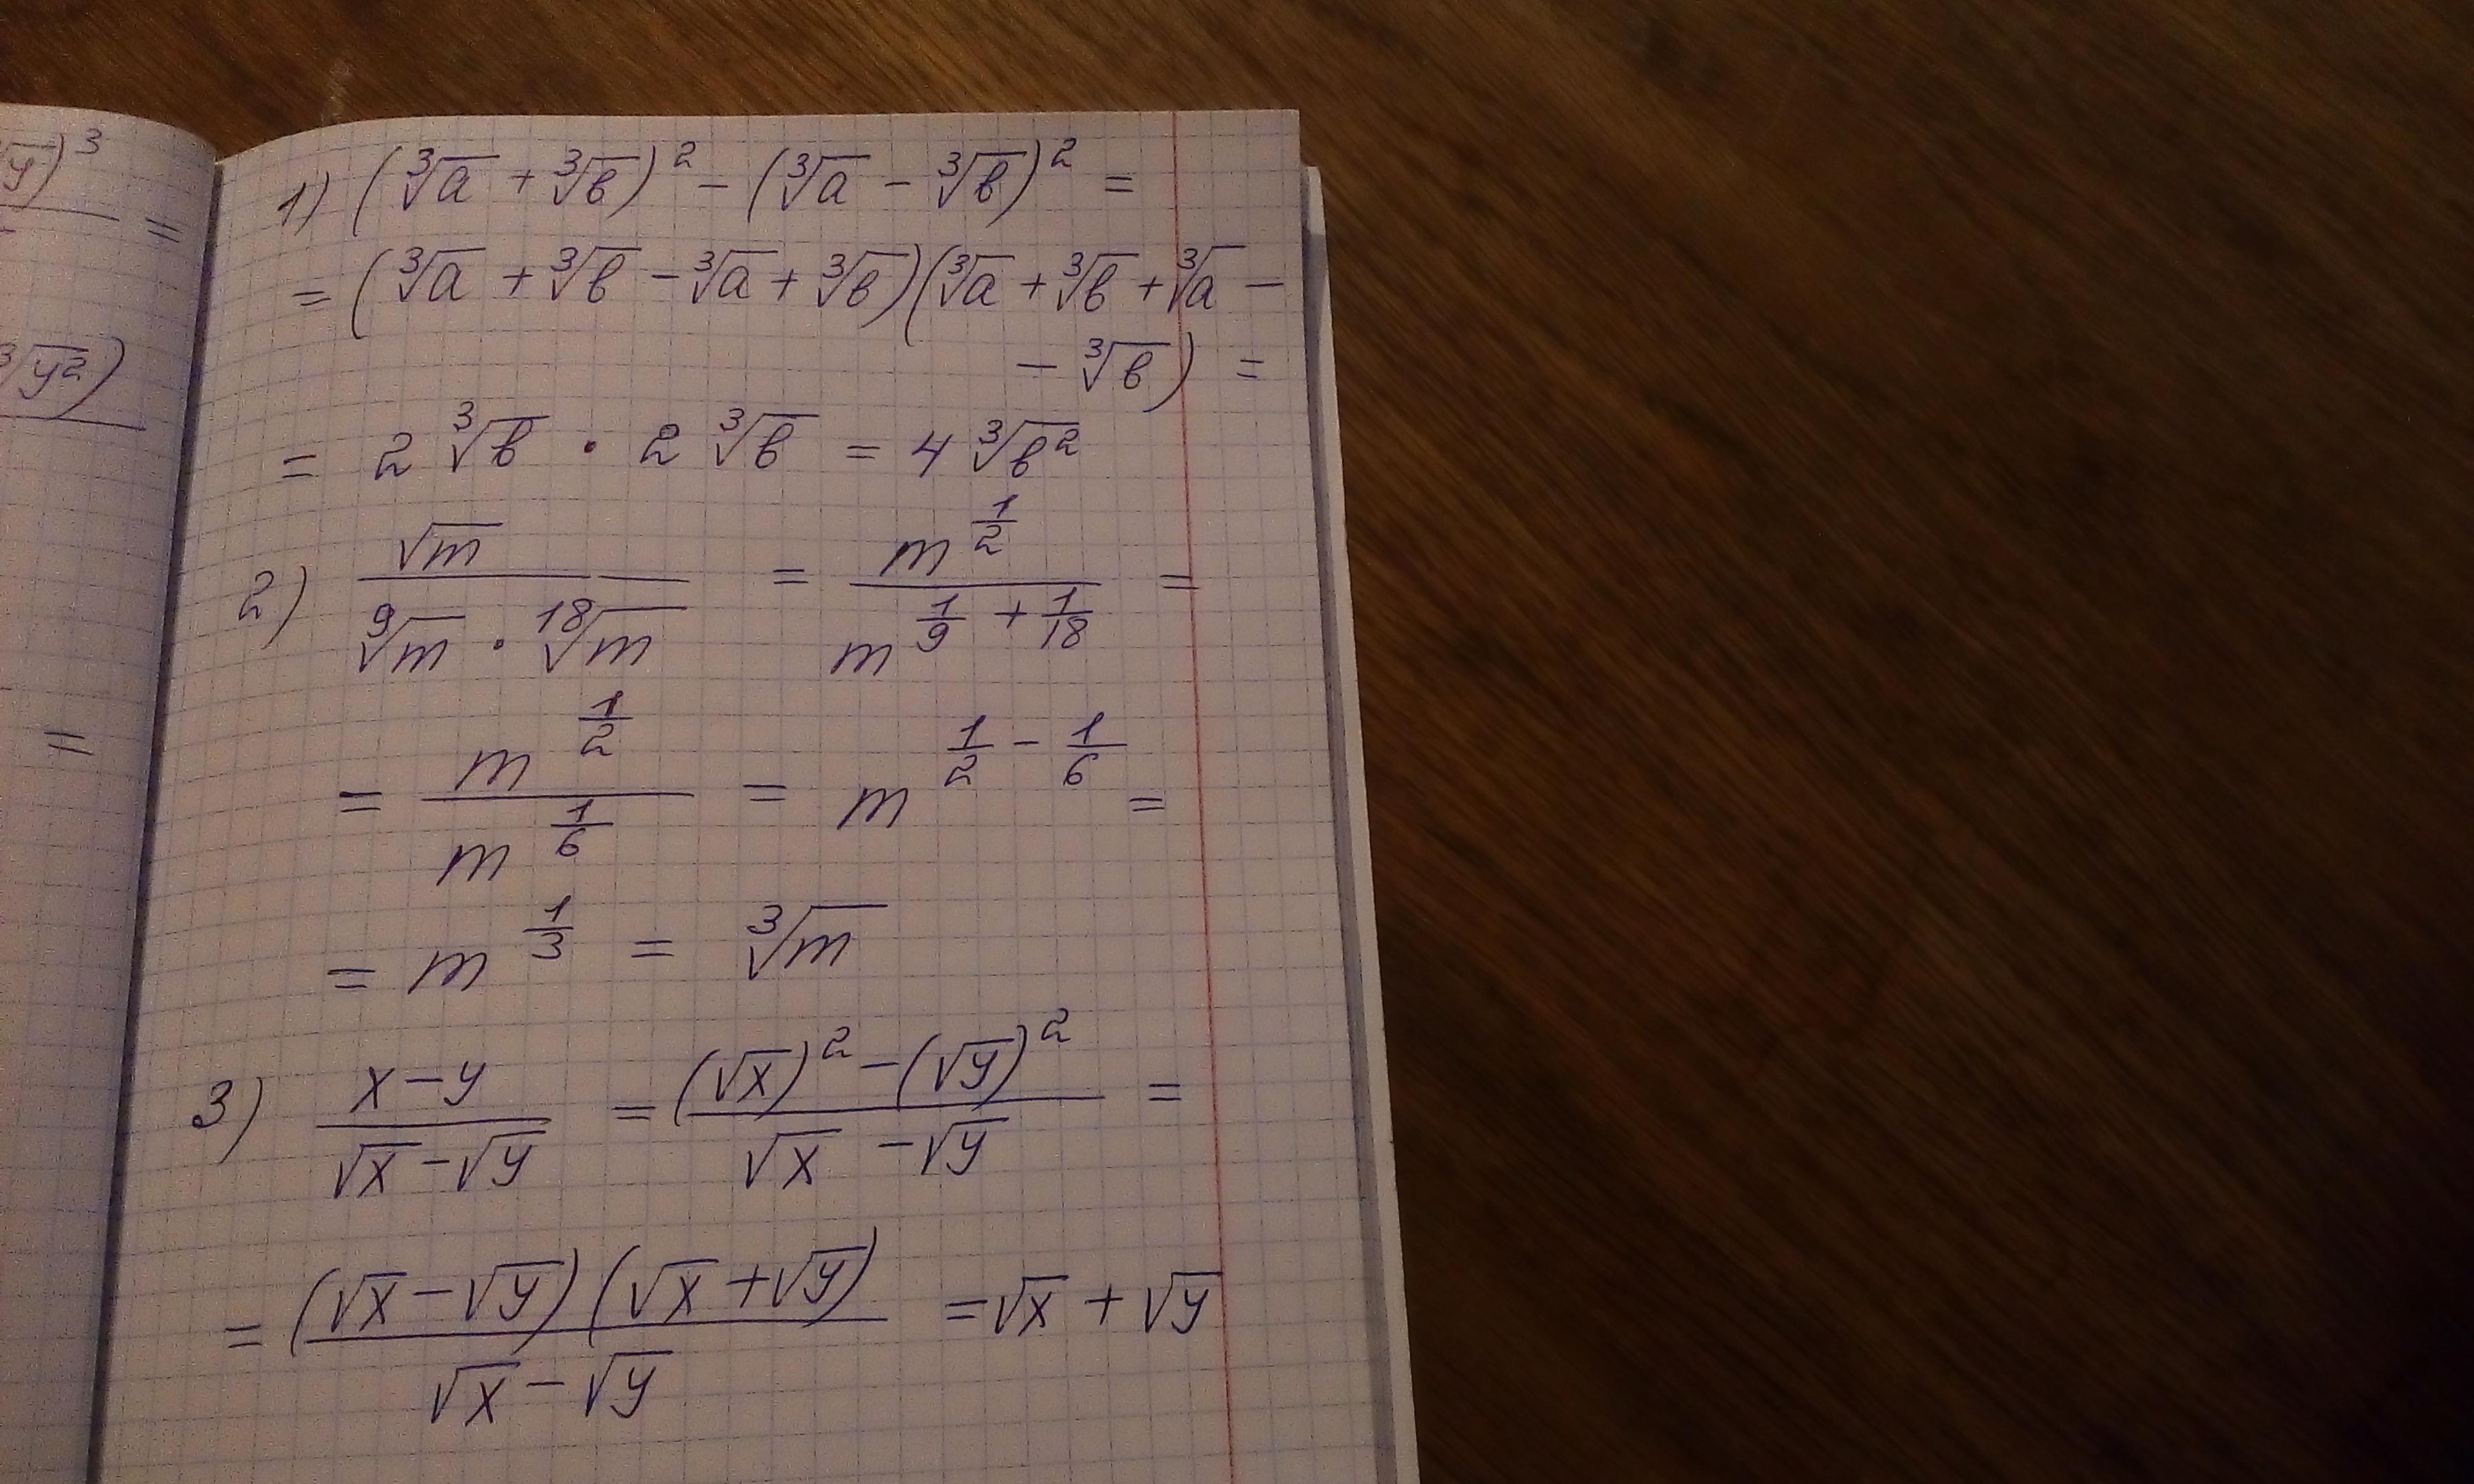 y)³
=
³√y²)
=
1) (³√a + ³√в)² - (³√a - ³√в)² =
= (³√a + ³√в - ³√a + ³√в)(³√a + ³√в + ³√a -
- ³√в) =
= 2 ³√в · 2 ³√в = 4 ³√в²
2) √m / (⁹√m · ¹⁸√m) = m^(1/2) / m^(1/9 + 1/18) =
= m^(1/2) / m^(1/6) = m^(1/2 - 1/6) =
= m^(1/3) = ³√m
3) (x - y) / (√x - √y) = ((√x)² - (√y)²) / (√x - √y) =
= (√x - √y)(√x + √y) / (√x - √y) = √x + √y